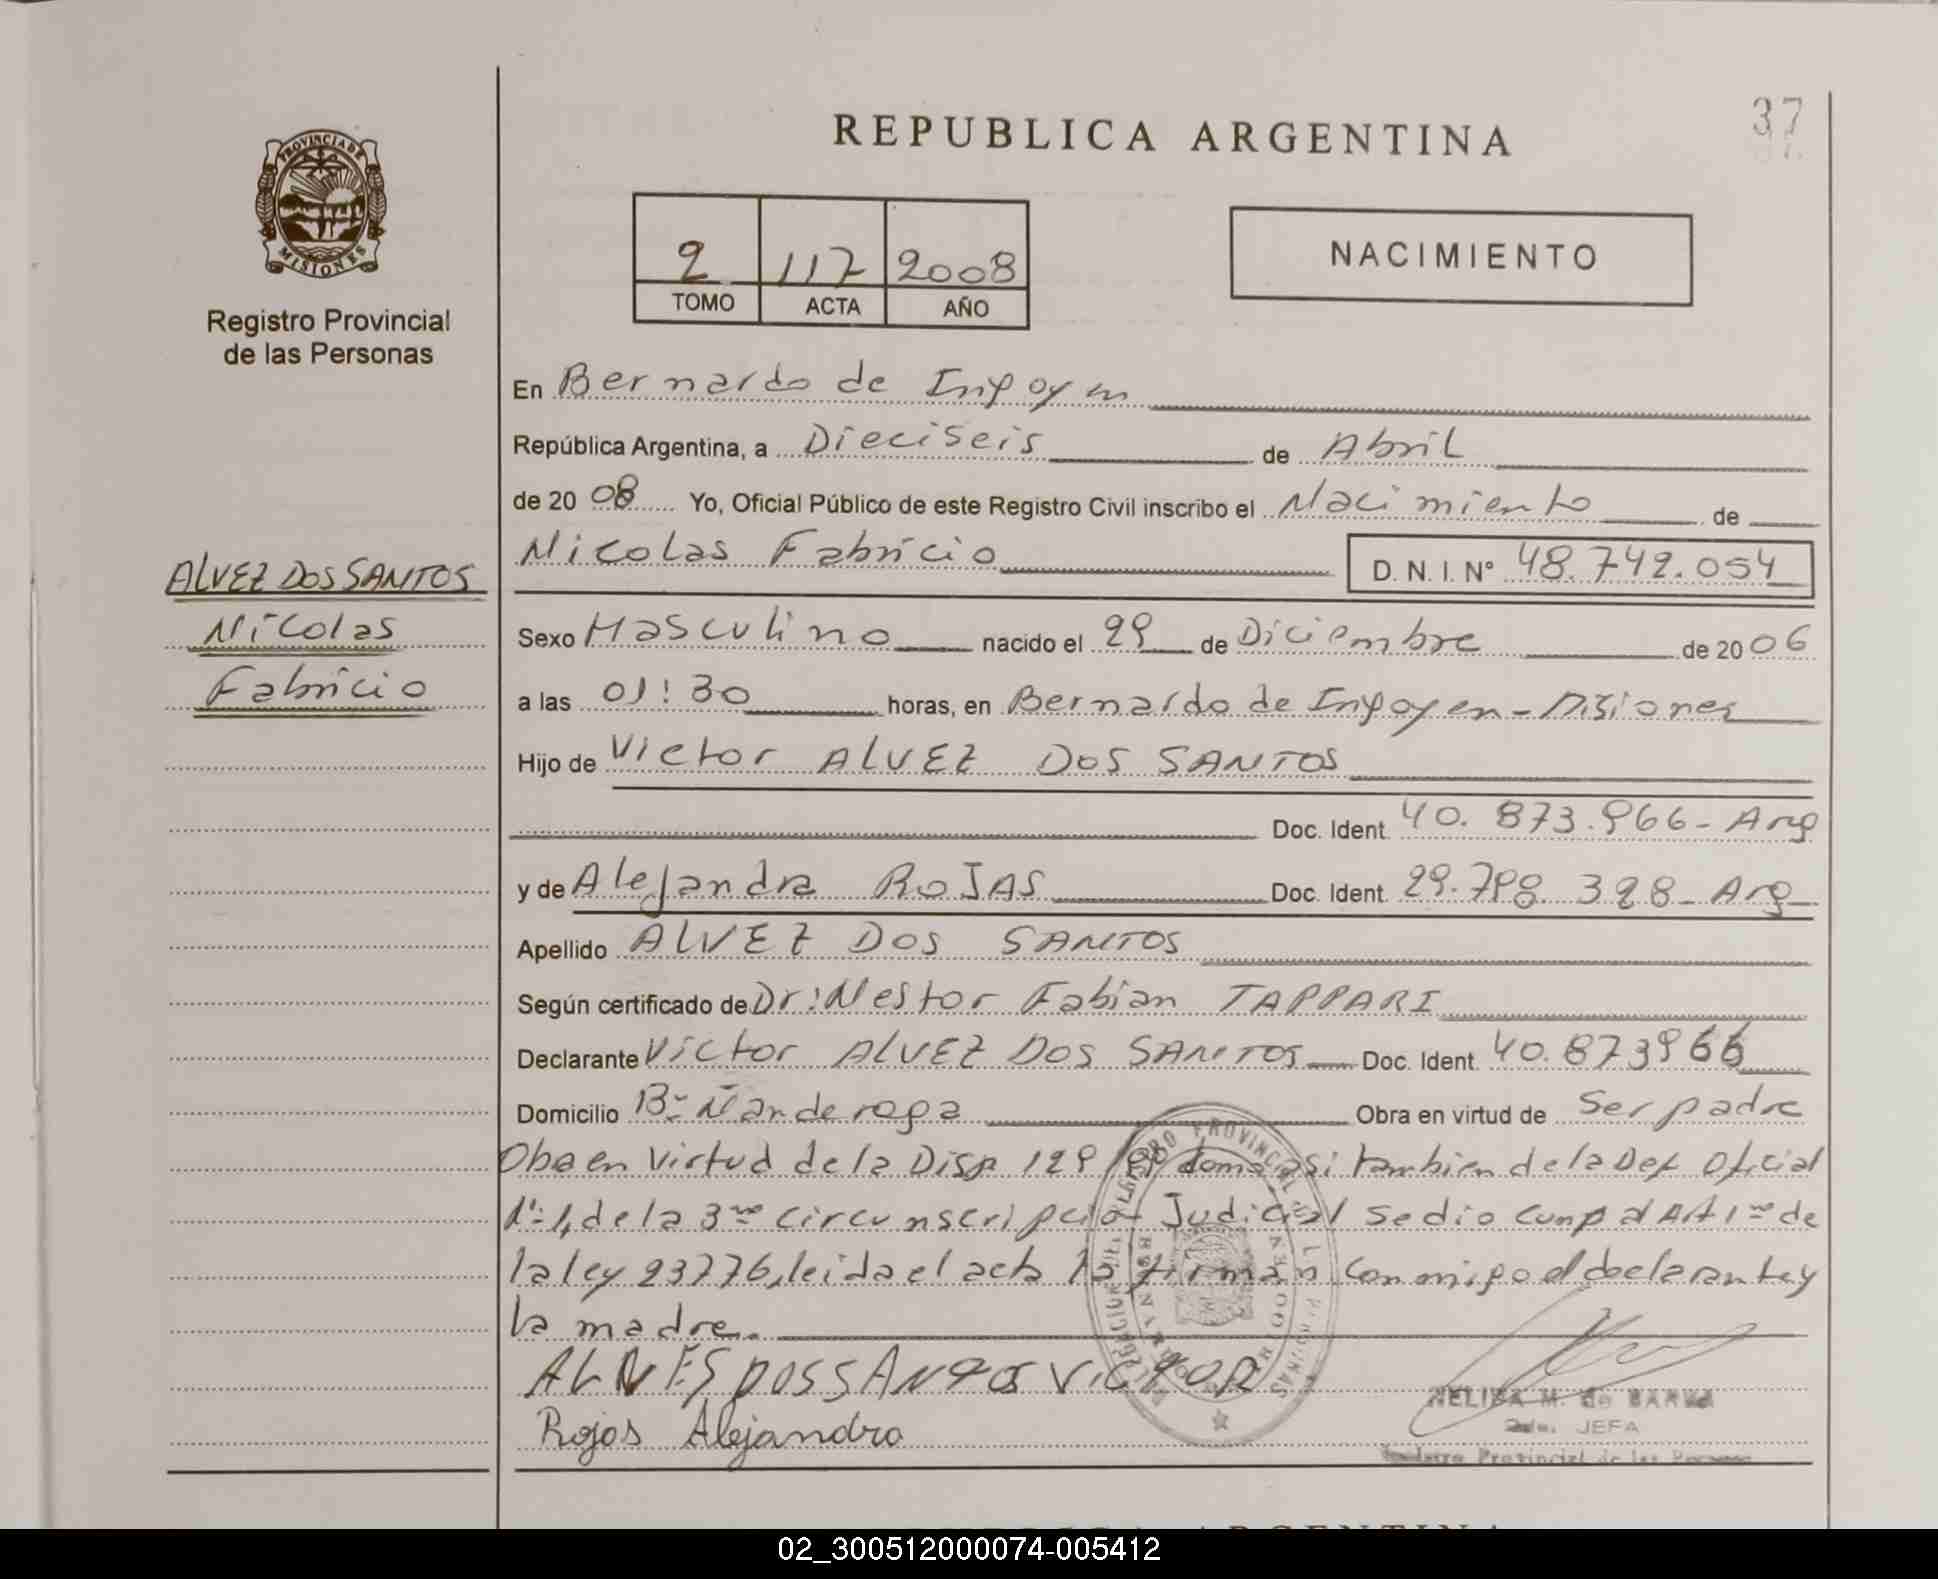 REPUBLICA ARGENTINA
37
PROVINCIA DE
MISIONES
Registro Provincial
de las Personas
2 117 2008
TOMO ACTA AÑO
NACIMIENTO
En Bernardo de Irigoyen
República Argentina, a Dieciseis de Abril
de 2008 Yo, Oficial Público de este Registro Civil inscribo el Nacimiento de
Nicolas Fabricio D. N. I. N° 48.742.054
ALVEZ DOS SANTOS
Nicolas
Fabricio
Sexo Masculino nacido el 29 de Diciembre de 2006
a las 01:30 horas, en Bernardo de Irigoyen - Misiones
Hijo de Victor ALVEZ DOS SANTOS
Doc. Ident. 40.873.966 - Arg
y de Alejandra ROJAS Doc. Ident. 29.798.328 - Arg
Apellido ALVEZ DOS SANTOS
Según certificado de Dr: Nestor Fabian TAPPARI
Declarante Victor ALVEZ DOS SANTOS Doc. Ident. 40.873966
Domicilio Bº Ñanderoga Obra en virtud de Ser padre
Oba en virtud de la Disp 129 asi tambien de la Def Oficial
Nº 1, de la 3ra circunscripcion Judicial se dio cunp al Art 1ro de
la ley 23776, leida el acta la firman conmigo el declarante y
la madre.
ALVES DOSSANTOS VICTOR
Rojas Alejandra
NELIDA M. de
JEFA
Provincial de las Personas
REPUBLICA ARGENTINA
02_300512000074-005412